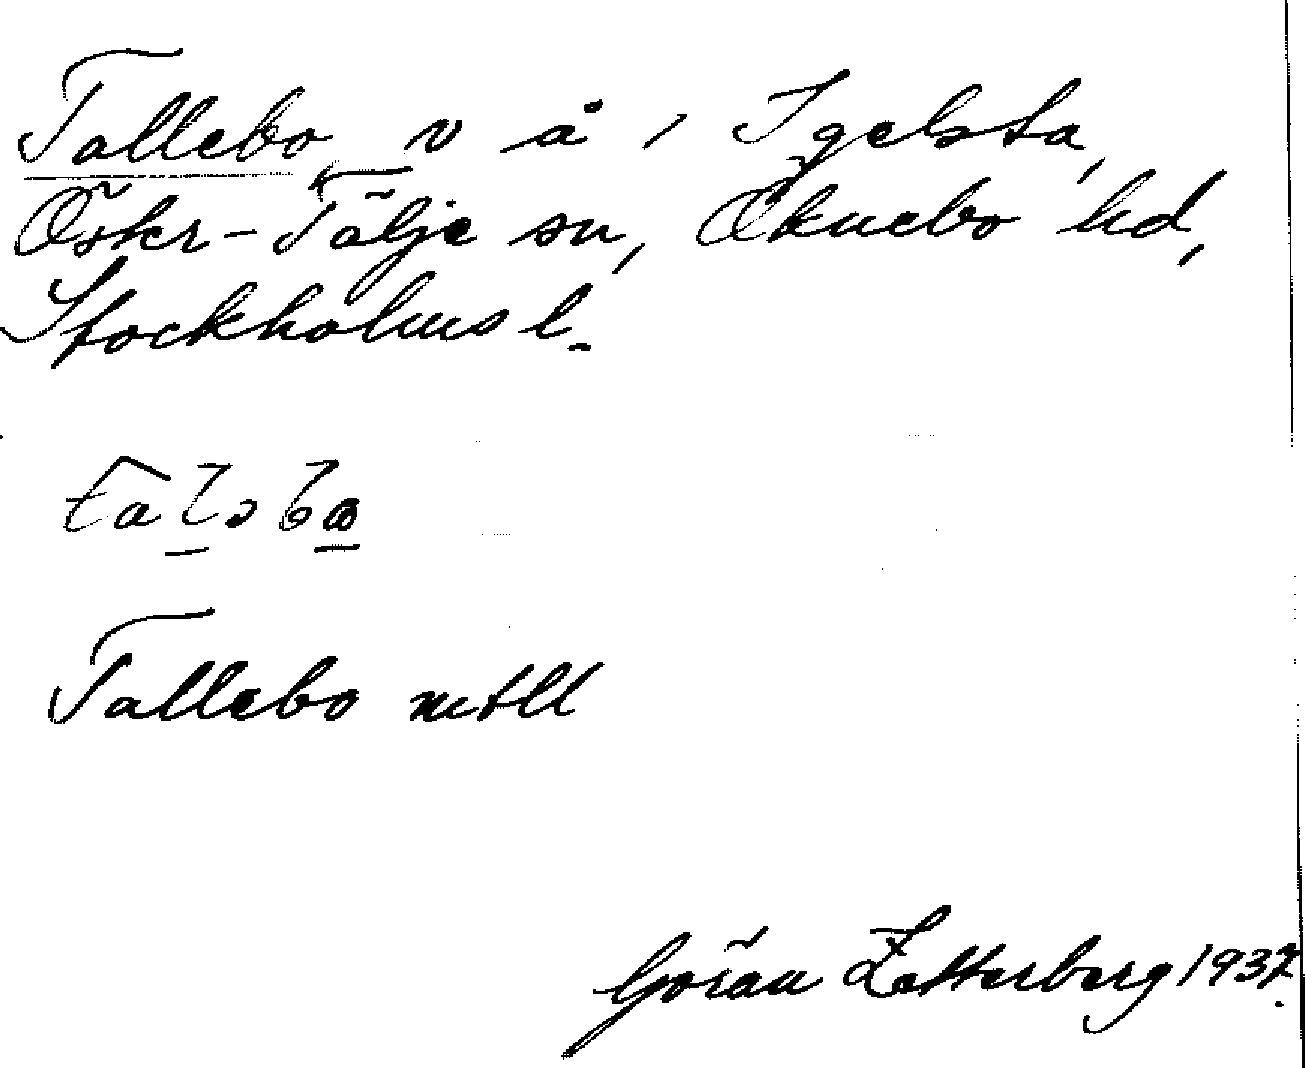 Tallebo, v å i Igelsta,
Öster-Tälje sn, Öknebo hd,
Stockholms l.
Tallebo mtll
Göran Zetterberg 1937.